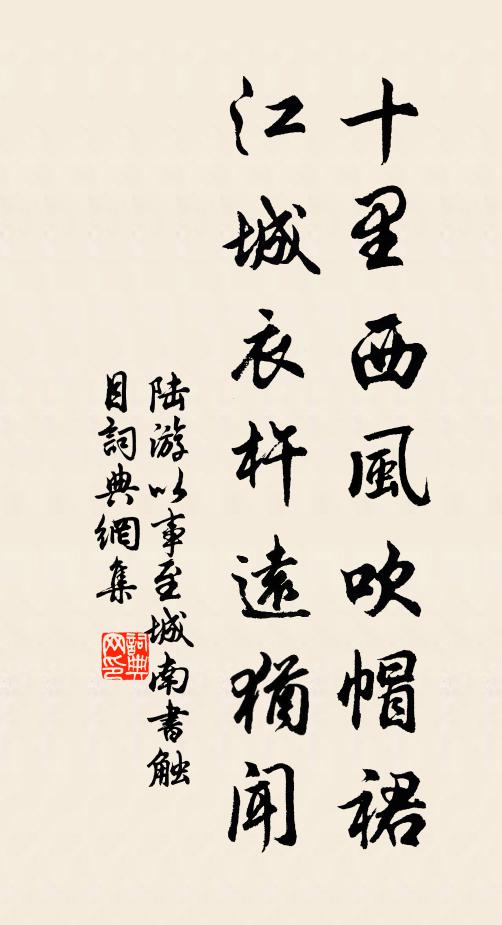 十里西風吹帽裙
江城衣杵遠猶聞
陆游以事至城南書触
目詞典網集
詞典
网印